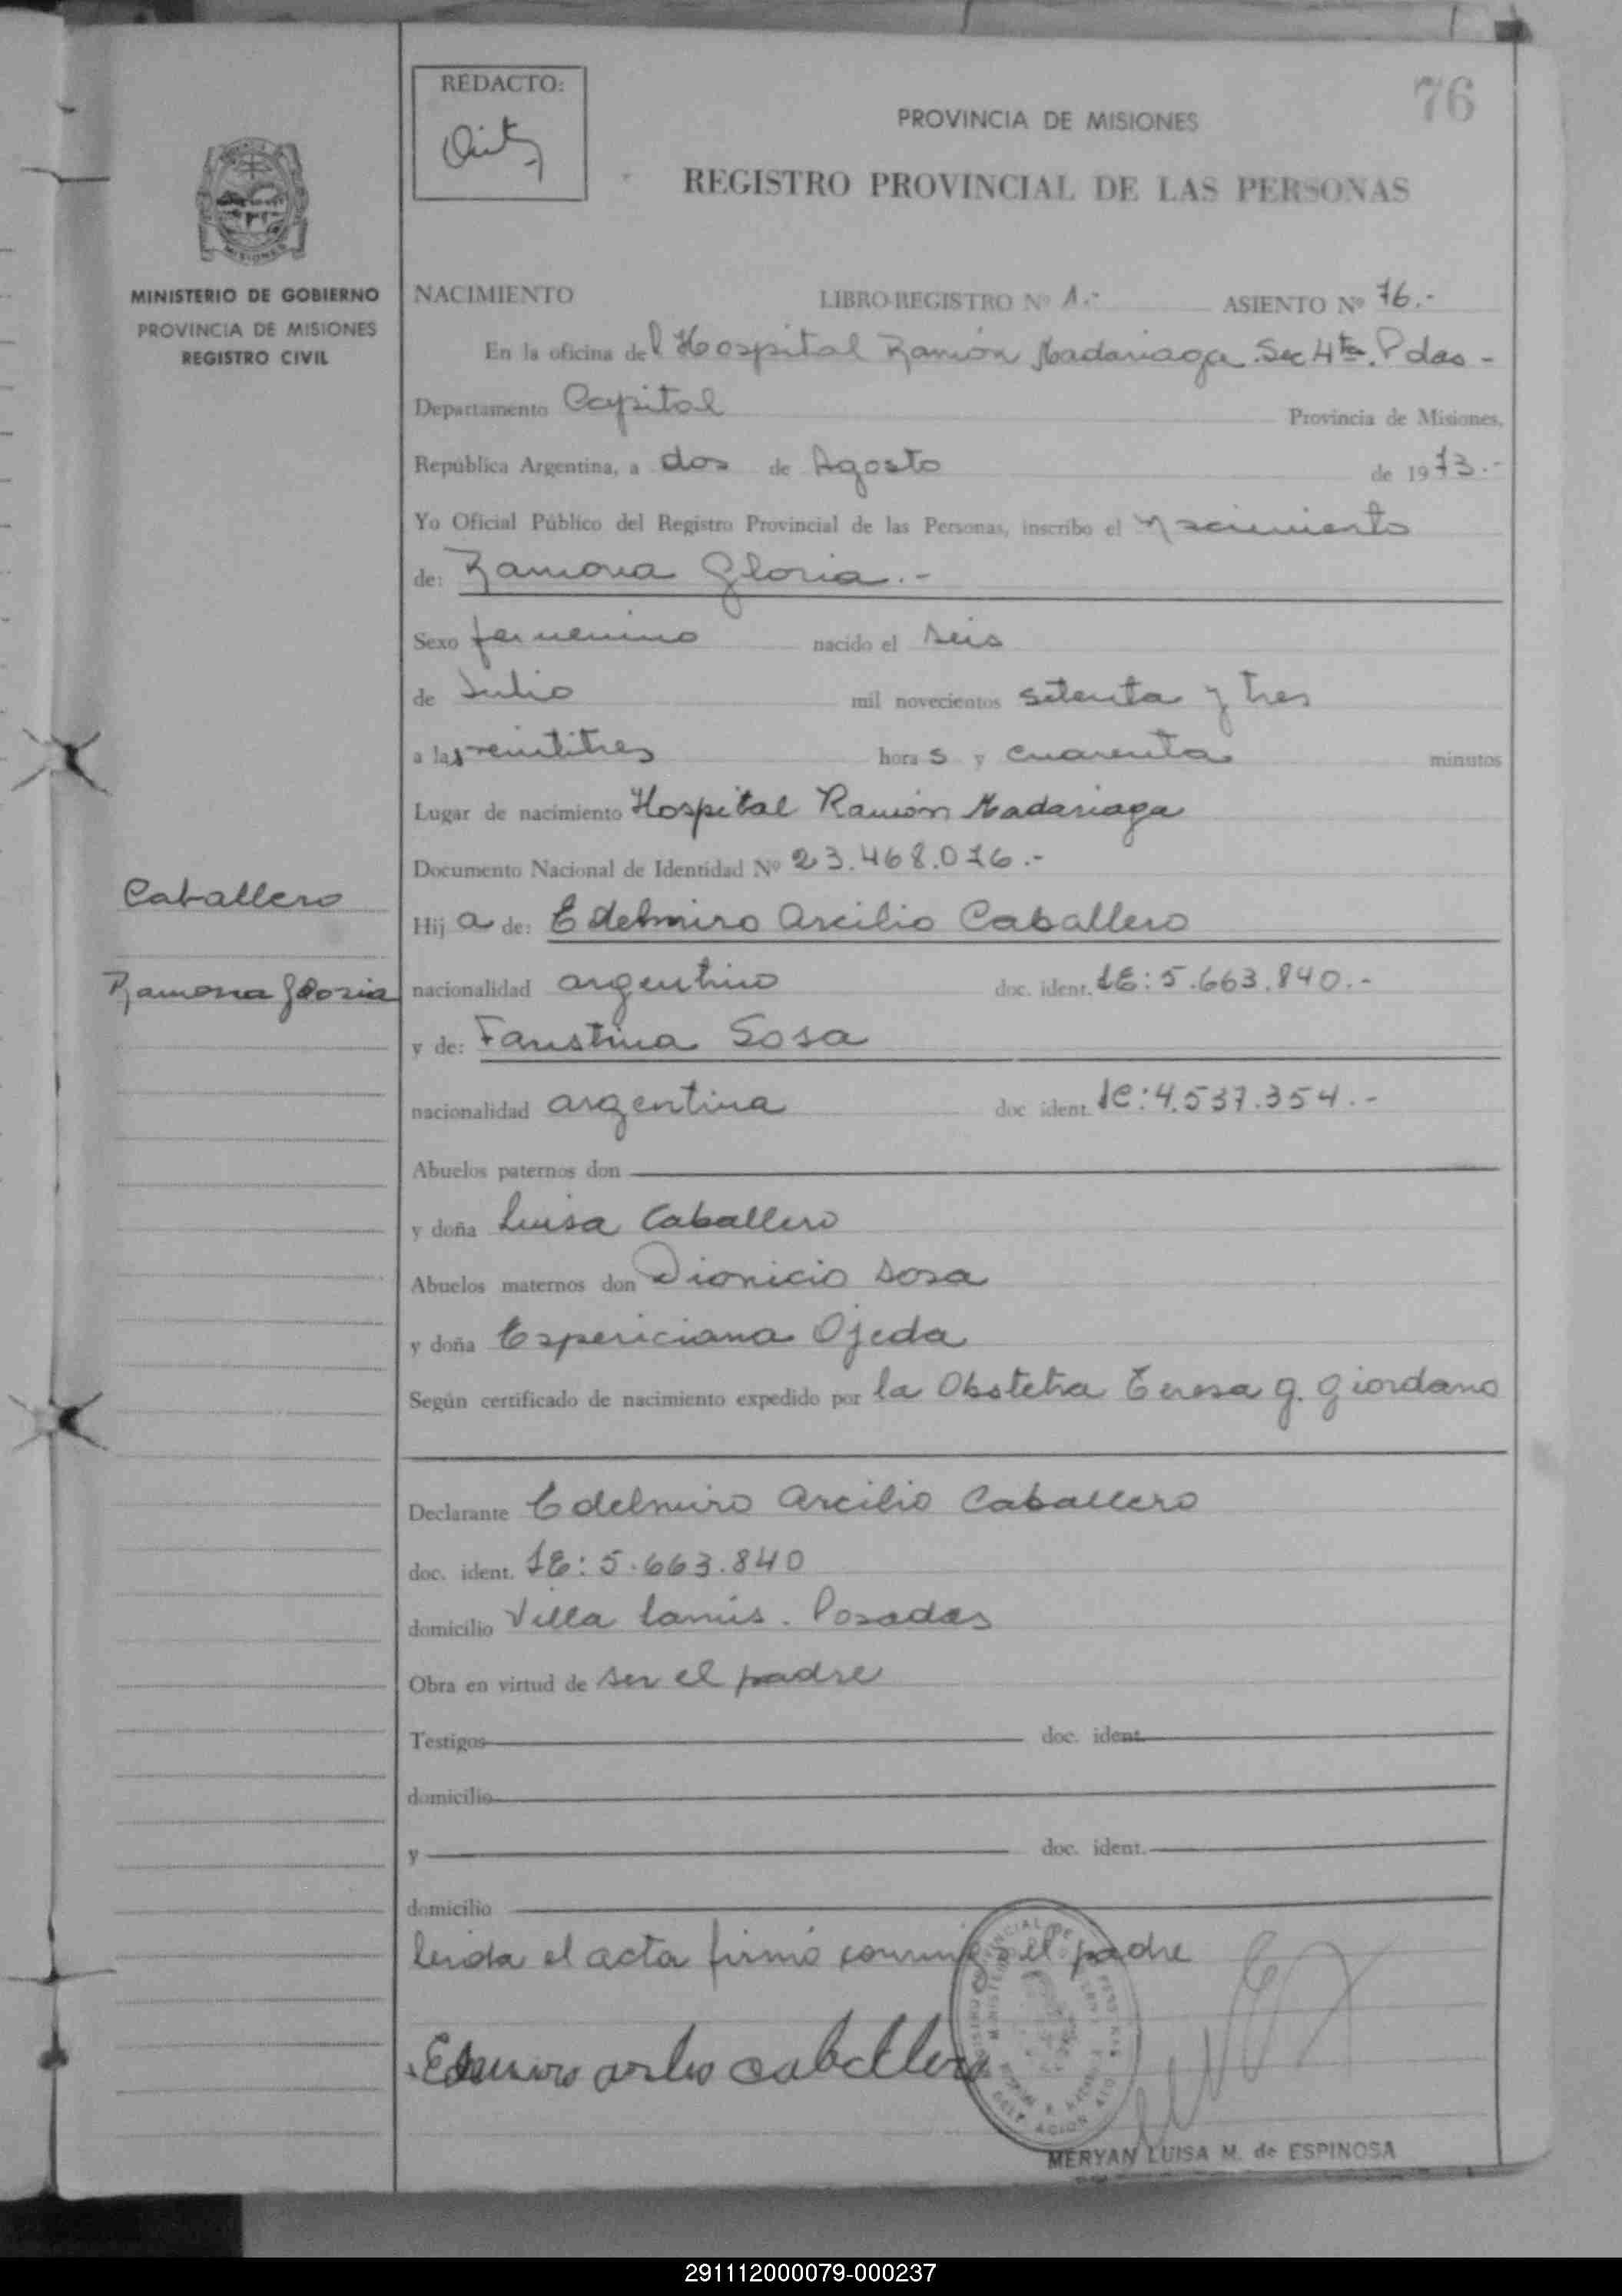 REDACTO:
76
PROVINCIA DE MISIONES
REGISTRO PROVINCIAL DE LAS PERSONAS
MISIONES
MINISTERIO DE GOBIERNO
PROVINCIA DE MISIONES
REGISTRO CIVIL
NACIMIENTO LIBRO-REGISTRO Nº 1.- ASIENTO Nº 76.-
En la oficina del Hospital Ramón Madariaga Sec 4ta. Pdas -
Departamento Capital Provincia de Misiones,
República Argentina, a dos de Agosto de 1973.-
Yo Oficial Público del Registro Provincial de las Personas, inscribo el Nacimiento
de: Ramona Gloria.-
Sexo femenino nacido el seis
de Julio mil novecientos setenta y tres
a las veintitres horas y cuarenta minutos
Lugar de nacimiento Hospital Ramón Madariaga
Documento Nacional de Identidad Nº 23.468.016.-
Caballero
Hija de: Edelmiro Arcilio Caballero
Ramona Gloria
nacionalidad argentino doc. ident. LE: 5.663.840.-
y de: Faustina Sosa
nacionalidad argentina doc ident. LC: 4.537.354.-
Abuelos paternos don
y doña Luisa Caballero
Abuelos maternos don Dionicio Sosa
y doña Espericiana Ojeda
Según certificado de nacimiento expedido por la Obstetra Teresa G. Giordano
Declarante Edelmiro Arcilio Caballero
doc. ident. LE: 5.663.840
domicilio Villa Lanús. Posadas
Obra en virtud de ser el padre
Testigos doc. ident.
domicilio
y doc. ident.
domicilio
leida el acta firmó conmigo el padre
Caballero
MERYAN LUISA M. de ESPINOSA
291112000079-000237